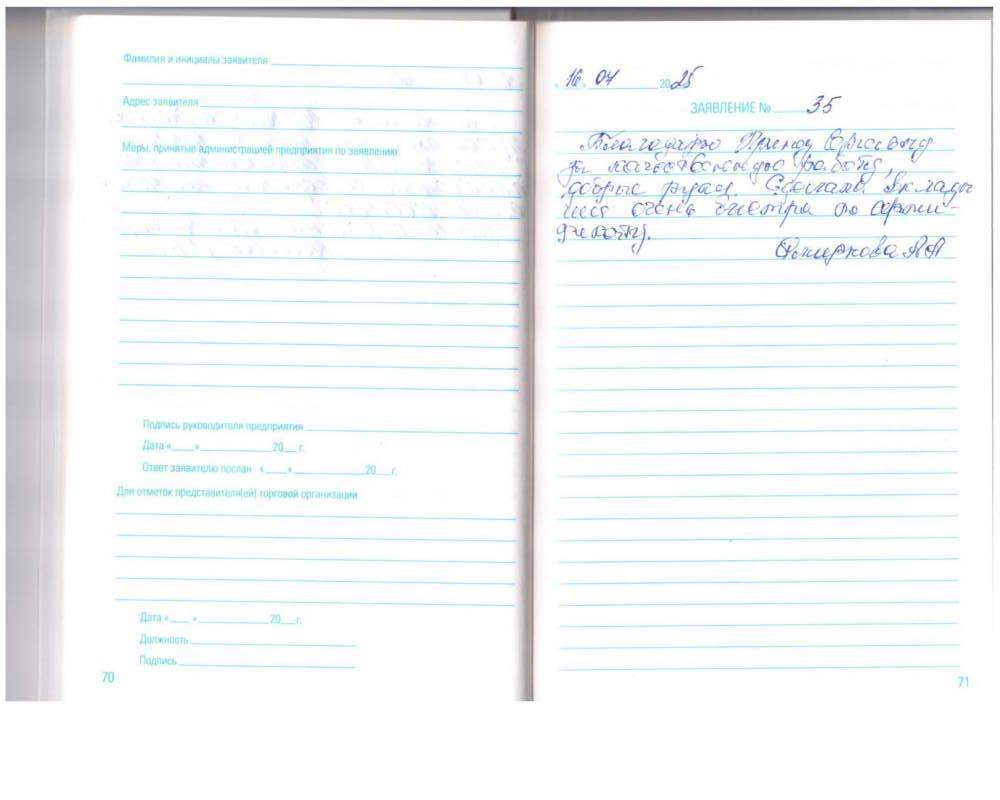 Фамилия и инициалы заявителя
Адрес заявителя
Меры, принятые администрацией предприятия по заявлению:
Подпись руководителя предприятия
Дата «___» 20__ г.
Ответ заявителю послан «___» 20__ г.
Для отметок представителя(ей) торговой организации
Дата «___» 20__ г.
Должность
Подпись
70
16 04 2025
ЗАЯВЛЕНИЕ № 35
Благодарю
за работу,
добрые руки. Сделали вклады
очень быстро по
Смиркова А А
71